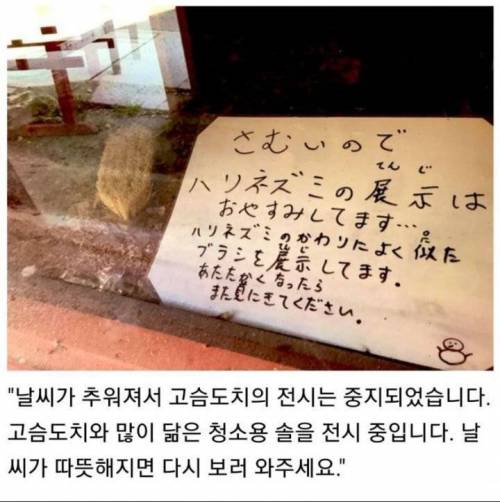 さむいので
ハリネズミの展示は
てんじ
おやすみしてます…
ハリネズミのかわりによく似た
に
ブラシを展示してます。
てんじ
あたたかくなったら
また見にきてください。
"날씨가 추워져서 고슴도치의 전시는 중지되었습니다.
고슴도치와 많이 닮은 청소용 솔을 전시 중입니다. 날
씨가 따뜻해지면 다시 보러 와주세요."